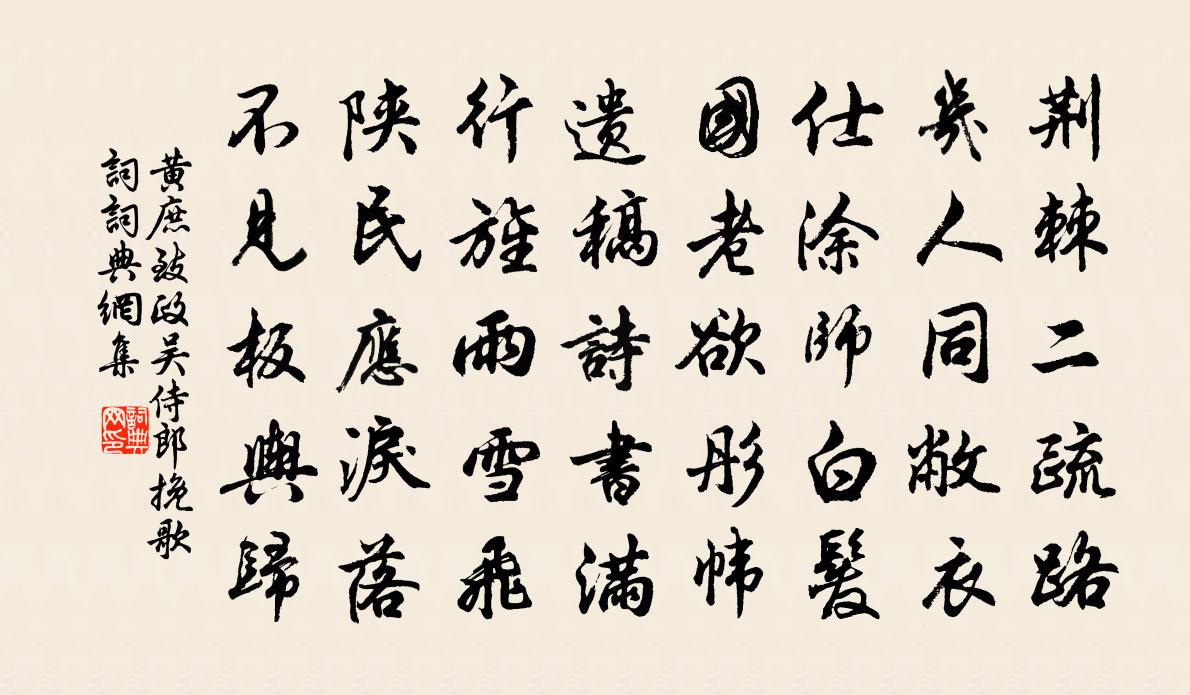 荆棘二疏路
幾人同敝衣
仕涂師白髮
國老欲彤幃
遺稿詩書滿
行旌雨雪飛
陝民應淚落
不見板輿歸
黄庶致政吴侍郎挽歌
詞詞典網集
詞典网印